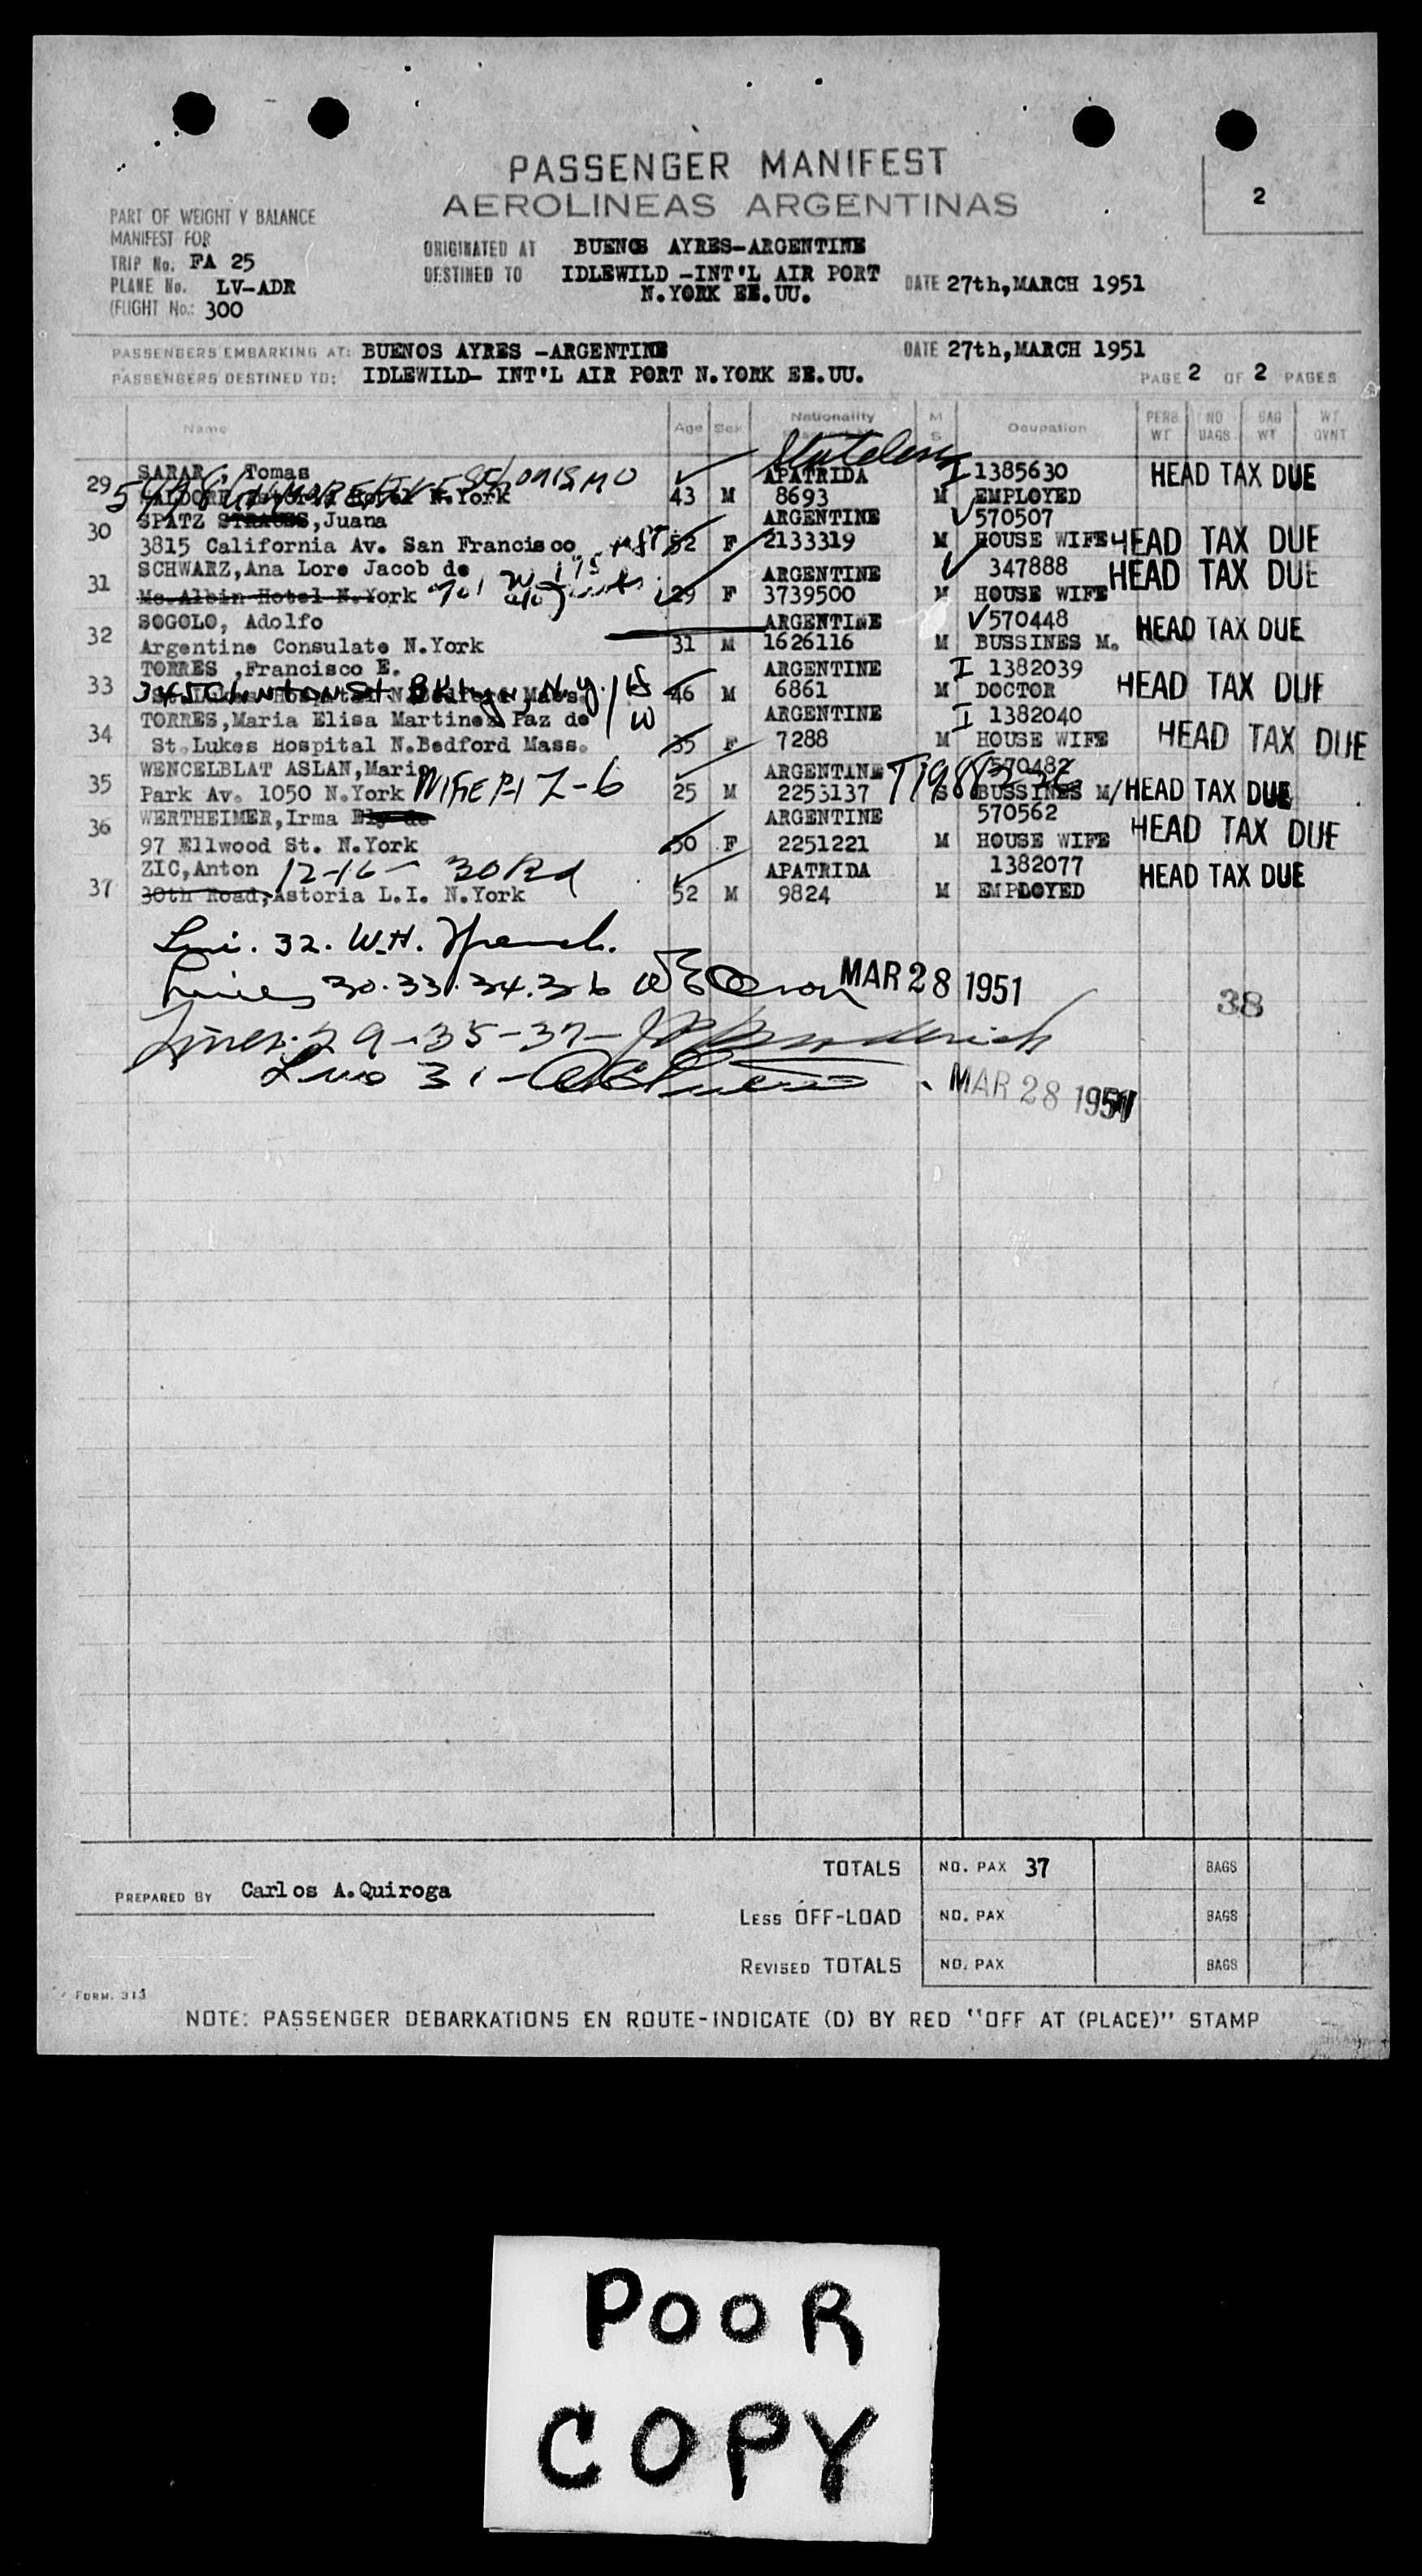 PASSENGER MANIFEST
AEROLINEAS ARGENTINAS
2
PART OF WEIGHT Y BALANCE
MANIFEST FOR
TRIP No. FA 25
PLANE No. LV-ADR
(FLIGHT No.: 300
ORIGINATED AT BUENOS AYRES-ARGENTINE
DESTINED TO IDLEWILD -INT'L AIR PORT
N.YORK EE.UU.
DATE 27th,MARCH 1951
PASSENGERS EMBARKING AT: BUENOS AYRES -ARGENTINE DATE 27th,MARCH 1951
PASSENGERS DESTINED TO: IDLEWILD- INT'L AIR PORT N.YORK EE.UU. PAGE 2 OF 2 PAGES
Name Age Sex Nationality M S Ocupation PERS. WT NO BAGS BAG WT WT QVNT
Stateless
29 SARAR, Tomas APATRIDA I 1385630 HEAD TAX DUE
Hotel N.York 43 M 8693 M EMPLOYED
30 SPATZ STRAUSS,Juana ARGENTINE 570507
3815 California Av. San Francisco 52 F 2133319 M HOUSE WIFE HEAD TAX DUE
31 SCHWARZ,Ana Lore Jacob de ARGENTINE 347888 HEAD TAX DUE
Mc.Albin Hotel N.York 29 F 3739500 M HOUSE WIFE
32 SOGOLO, Adolfo ARGENTINE 570448 HEAD TAX DUE
Argentine Consulate N.York 31 M 1626116 M BUSSINES M.
33 TORRES ,Francisco E. ARGENTINE I 1382039 HEAD TAX DUE
345 Clinton St. Bklyn, N.Y. 46 M 6861 M DOCTOR
34 TORRES,Maria Elisa Martinez Paz de ARGENTINE I 1382040 HEAD TAX DUE
St.Lukes Hospital N.Bedford Mass. 35 F 7288 M HOUSE WIFE
35 WENCELBLAT ASLAN,Mario ARGENTINE 570482
Park Av. 1050 N.York 25 M 2253137 S BUSSINES M/ HEAD TAX DUE
36 WERTHEIMER,Irma ARGENTINE 570562 HEAD TAX DUE
97 Ellwood St. N.York 50 F 2251221 M HOUSE WIFE
37 ZIC,Anton 12-16- 30 Rd APATRIDA 1382077 HEAD TAX DUE
30th Road,Astoria L.I. N.York 52 M 9824 M EMPLOYED
32. W.H.
Lines 30.33.34.36 MAR 28 1951
38
Lines 29-35-37-
31- MAR 28 1951
TOTALS NO. PAX 37 BAGS
PREPARED BY Carlos A.Quiroga
LESS OFF-LOAD NO. PAX BAGS
REVISED TOTALS NO. PAX BAGS
FORM. 313
NOTE: PASSENGER DEBARKATIONS EN ROUTE-INDICATE (D) BY RED "OFF AT (PLACE)" STAMP
POOR
COPY